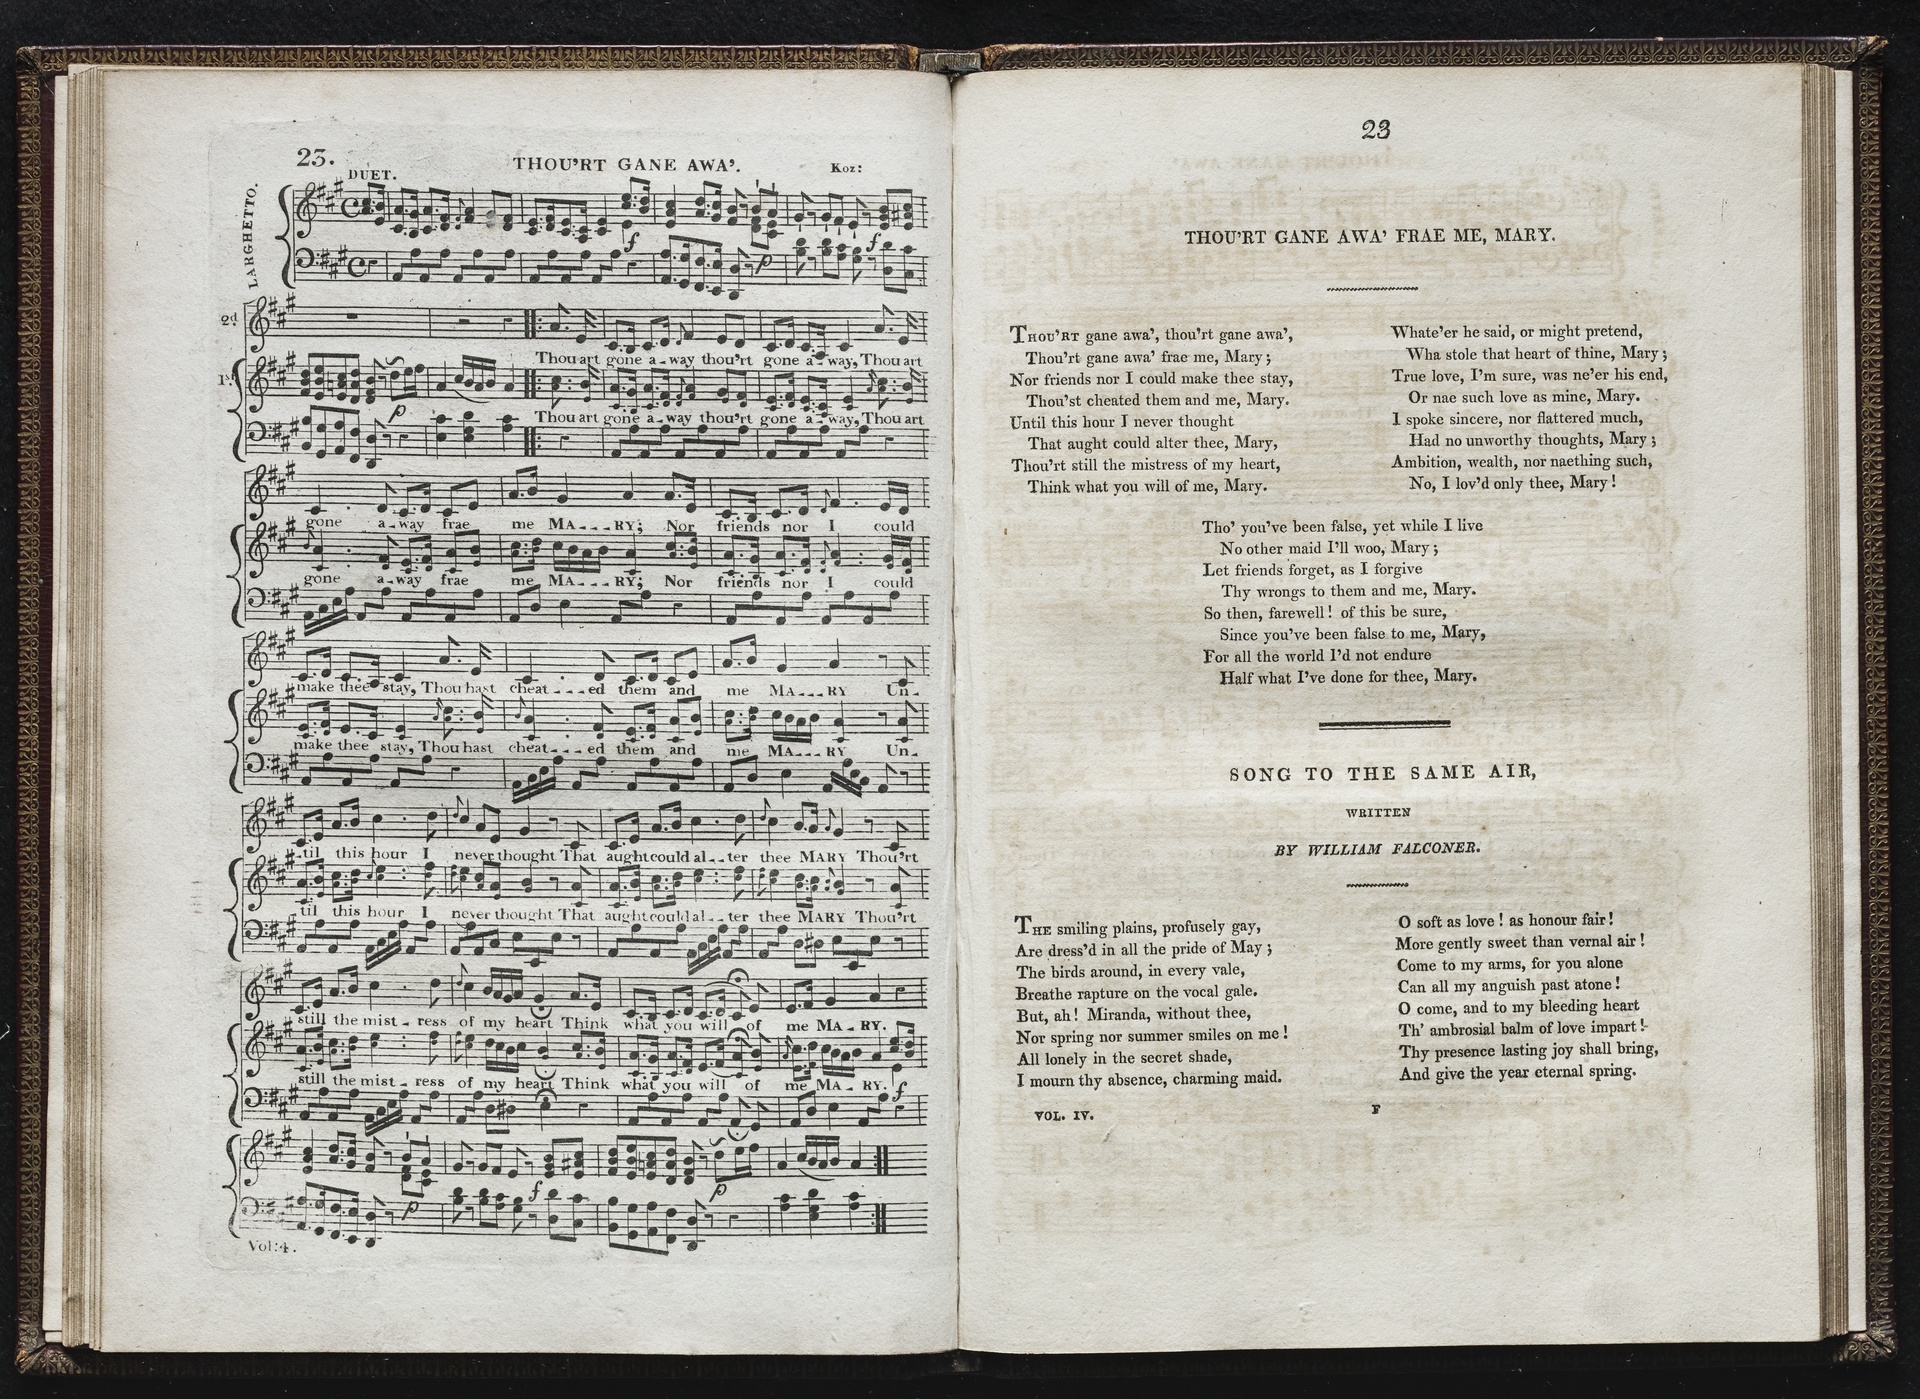 23.
THOU'RT GANE AWA'.
Koz:
DUET.
LARGHETTO.
f
p
f
2d
Thou art gone a-way thou'rt gone a-way, Thou art
1st
p
Thou art gone a-way thou'rt gone a-way, Thou art
gone a-way frae me MA---RY; Nor friends nor I could
gone a-way frae me MA---RY; Nor friends nor I could
make thee stay, Thou hast cheat---ed them and me MA---RY Un-
make thee stay, Thou hast cheat---ed them and me MA---RY Un-
til this hour I never thought That aught could al--ter thee MARY Thou'rt
til this hour I never thought That aught could al--ter thee MARY Thou'rt
still the mist-ress of my heart Think what you will of me MA-RY.
still the mist-ress of my heart Think what you will of me MA-RY. f
p
f
p
Vol:4.
23
THOU'RT GANE AWA' FRAE ME, MARY.
THOU'RT gane awa', thou'rt gane awa',
Thou'rt gane awa' frae me, Mary;
Nor friends nor I could make thee stay,
Thou'st cheated them and me, Mary.
Until this hour I never thought
That aught could alter thee, Mary,
Thou'rt still the mistress of my heart,
Think what you will of me, Mary.
Whate'er he said, or might pretend,
Wha stole that heart of thine, Mary;
True love, I'm sure, was ne'er his end,
Or nae such love as mine, Mary.
I spoke sincere, nor flattered much,
Had no unworthy thoughts, Mary;
Ambition, wealth, nor naething such,
No, I lov'd only thee, Mary!
Tho' you've been false, yet while I live
No other maid I'll woo, Mary;
Let friends forget, as I forgive
Thy wrongs to them and me, Mary.
So then, farewell! of this be sure,
Since you've been false to me, Mary,
For all the world I'd not endure
Half what I've done for thee, Mary.
SONG TO THE SAME AIR,
WRITTEN
BY WILLIAM FALCONER.
THE smiling plains, profusely gay,
Are dress'd in all the pride of May;
The birds around, in every vale,
Breathe rapture on the vocal gale.
But, ah! Miranda, without thee,
Nor spring nor summer smiles on me!
All lonely in the secret shade,
I mourn thy absence, charming maid.
O soft as love! as honour fair!
More gently sweet than vernal air!
Come to my arms, for you alone
Can all my anguish past atone!
O come, and to my bleeding heart
Th' ambrosial balm of love impart!
Thy presence lasting joy shall bring,
And give the year eternal spring.
VOL. IV.
F